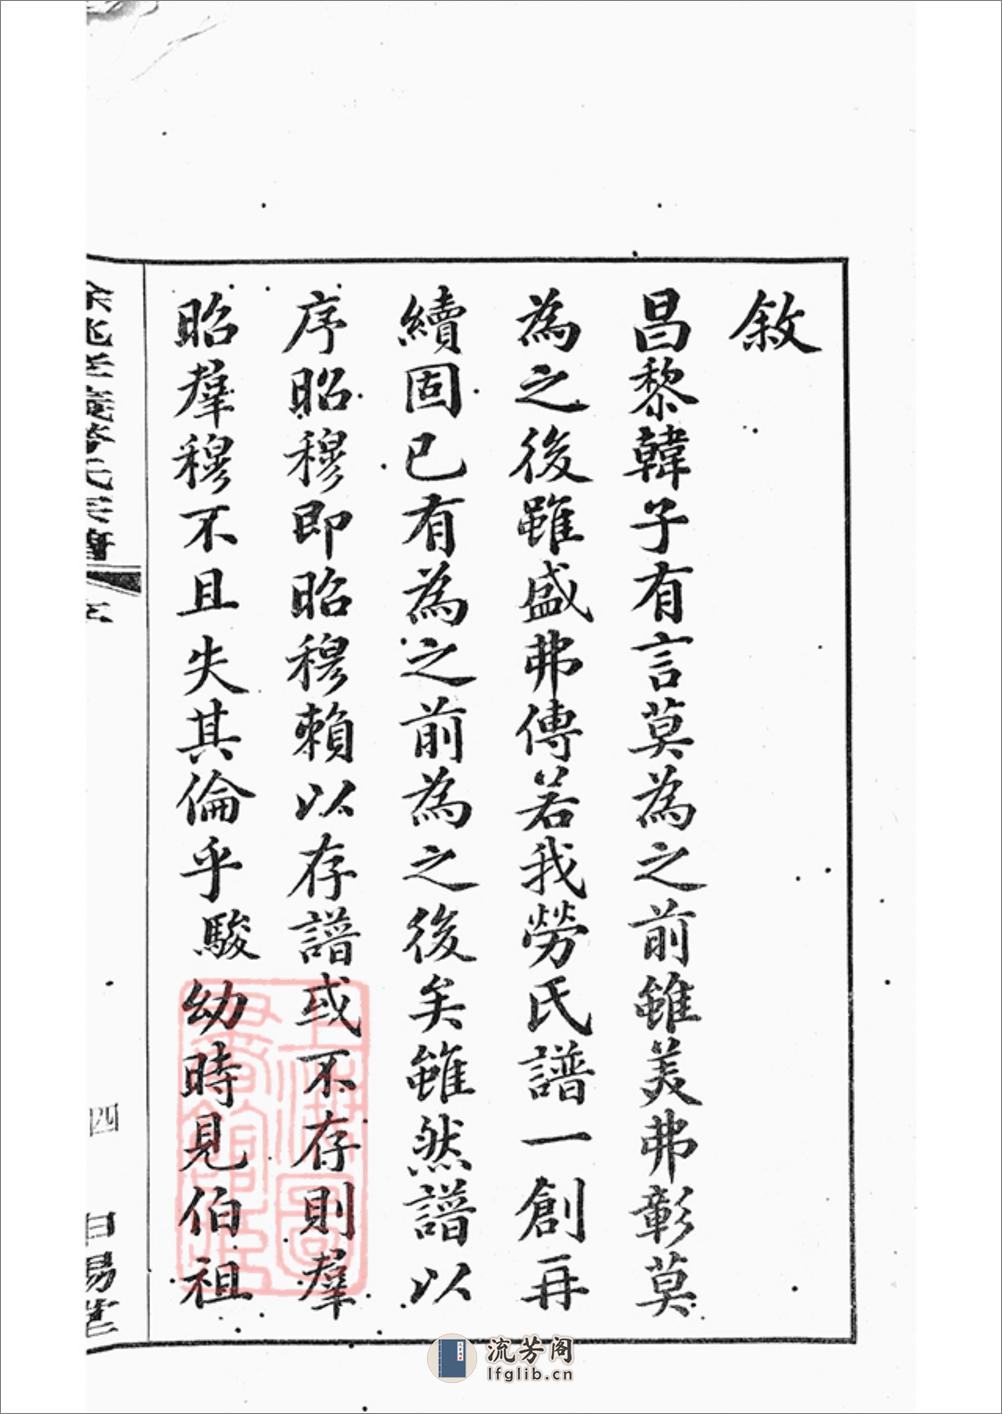 敘
昌黎韓子有言莫為之前雖美弗彰莫
為之後雖盛弗傳若我勞氏譜一創再
續固已有為之前為之後矣雖然譜以
序昭穆即昭穆賴以存譜或不存則羣
昭羣穆不且失其倫乎駿幼時見伯祖
四
上海圖書館藏
流芳阁
lfglib.cn